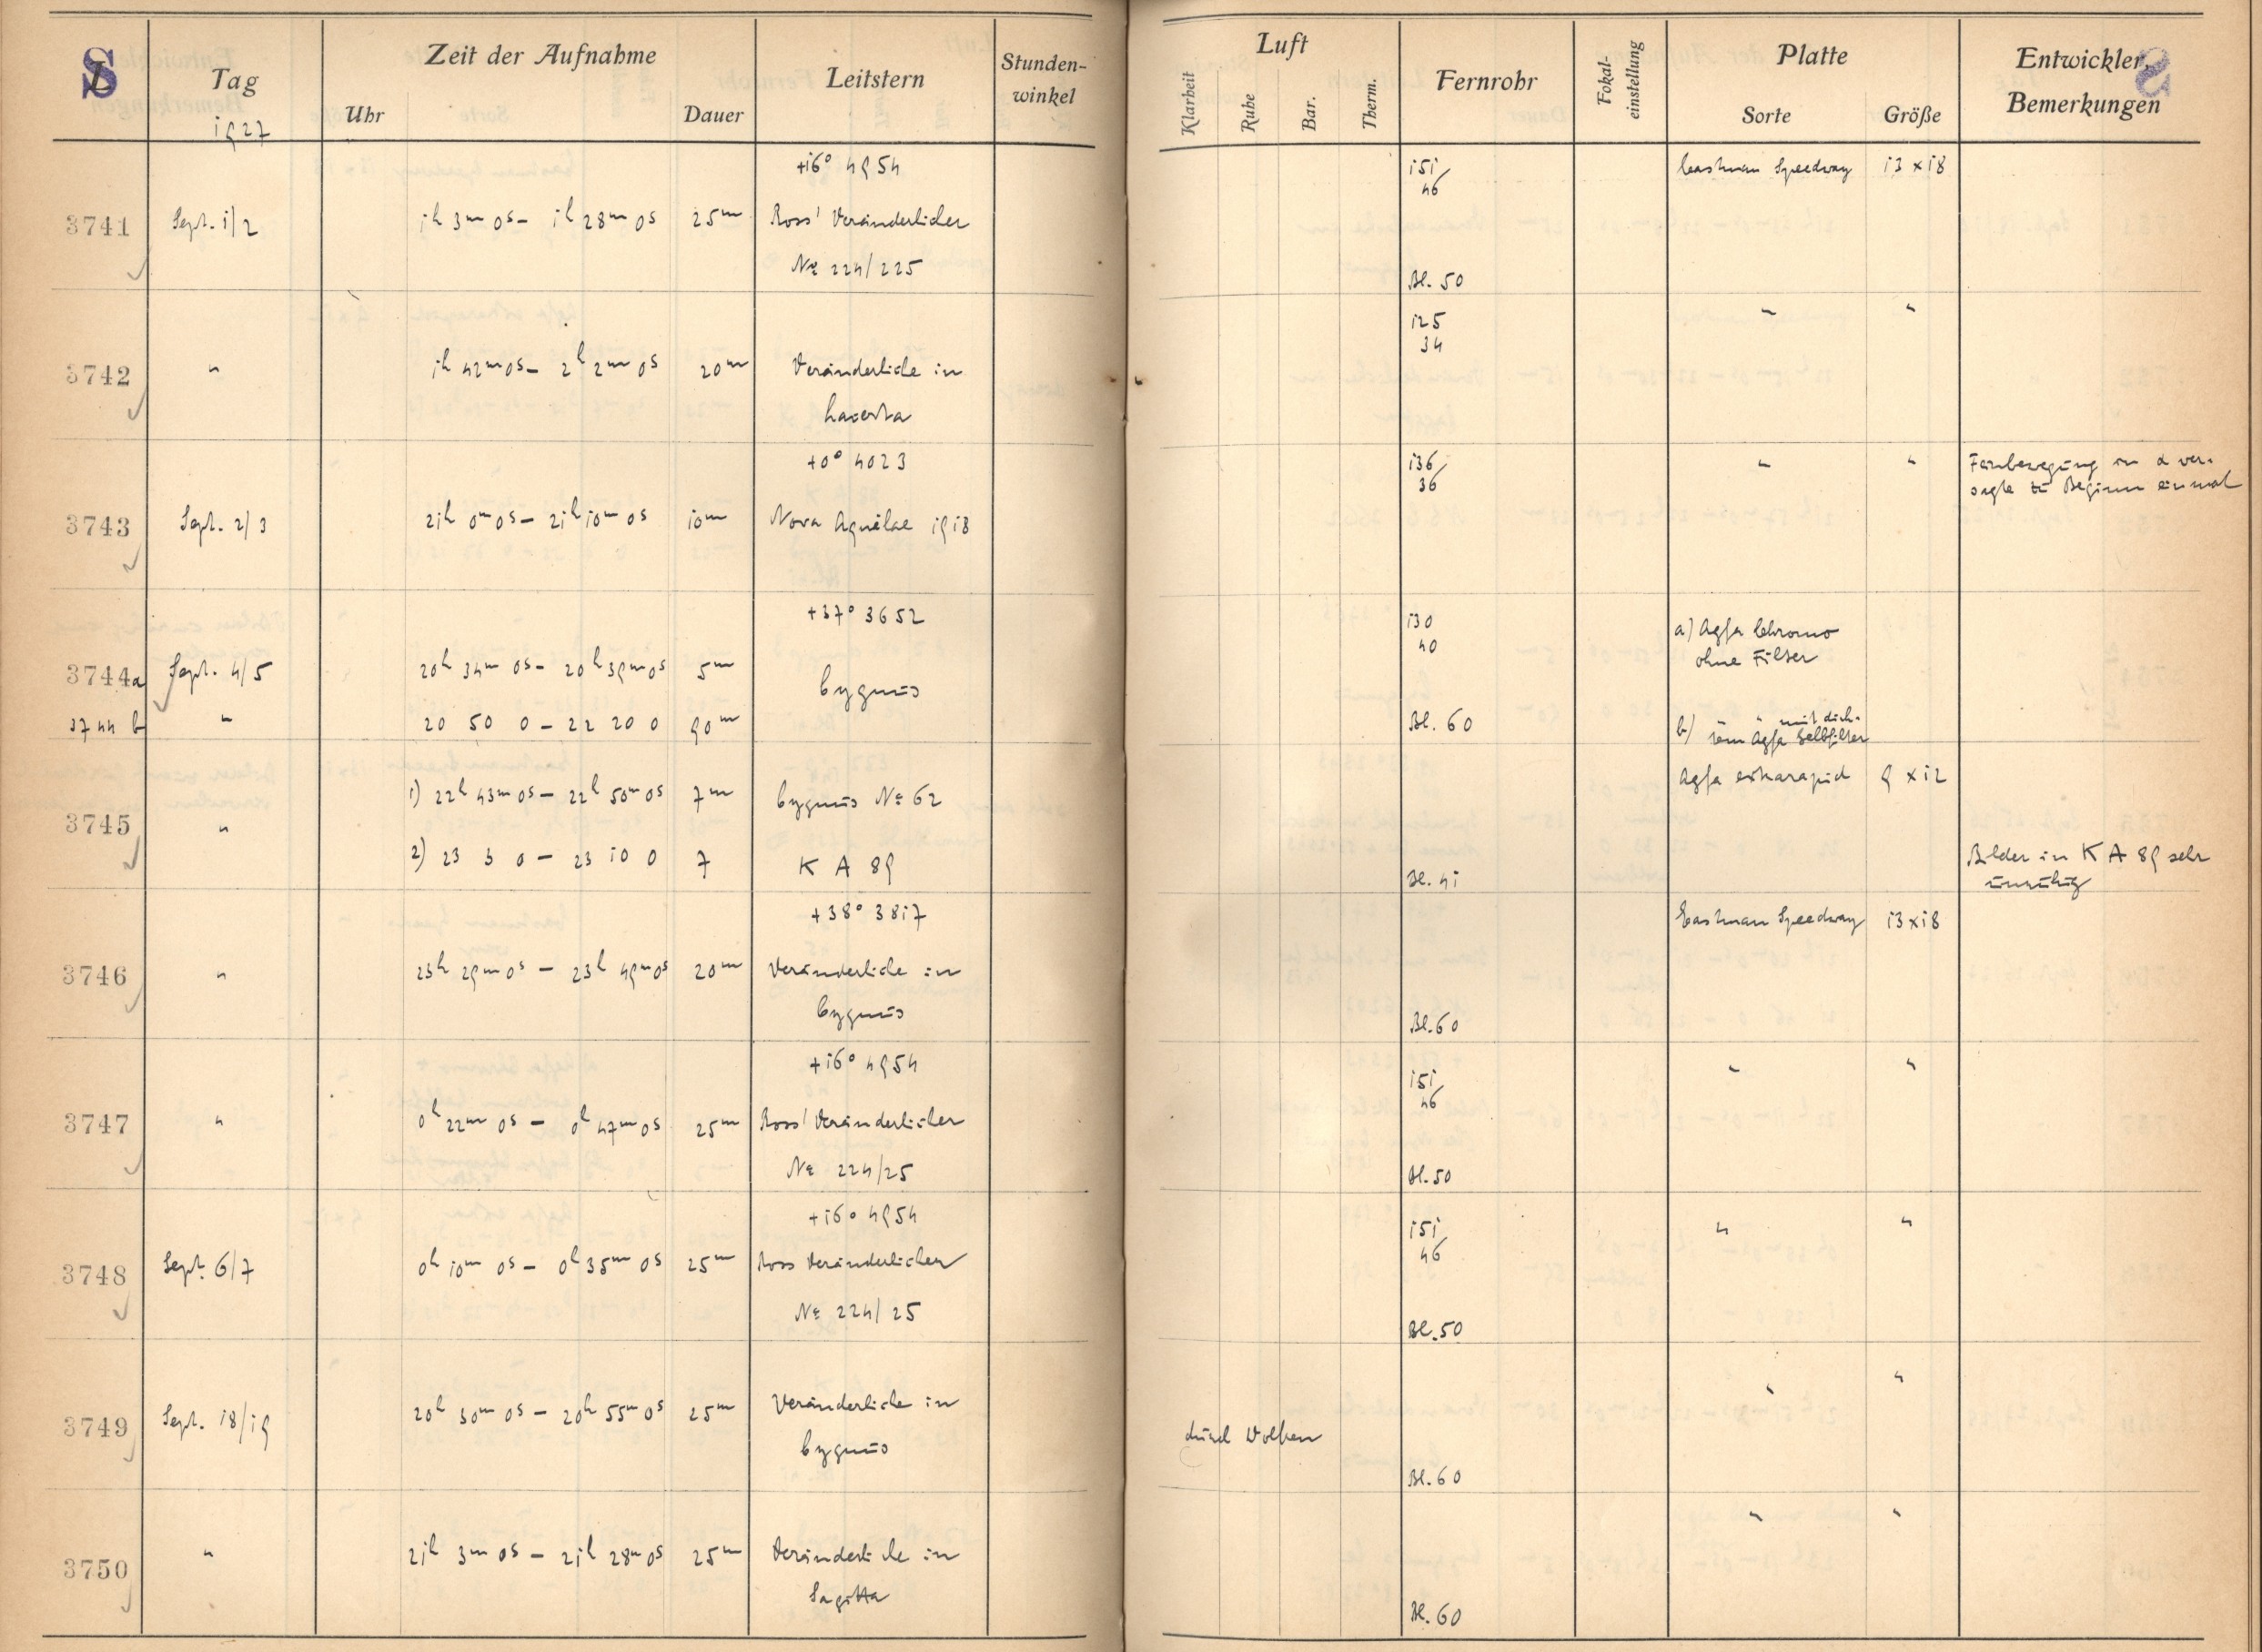 S
Tag
1927
Zeit der Aufnahme
Uhr
Dauer
Leitstern
Stunden-
winkel
Luft
Klarheit
Ruhe
Bar.
Therm.
Fernrohr
Fokal-
einstellung
Platte
Sorte
Größe
Entwickler,
Bemerkungen
+16° 4954
151/46
Eastman Speedway 13 x 18
3741 Sept. 1/2 1h 3m 0s - 1h 28m 0s 25m Ross' Veränderlicher
№ 224/225
Bl. 50
125
34
" "
3742 " 1h 42m 0s - 2h 2m 0s 20m Veränderliche in
Lacerta
+0° 4023
136/36
" "
Feinbewegung in α ver-
sagte zu Beginn einmal
3743 Sept. 2/3 21h 0m 0s - 21h 10m 0s 10m Nova Aquilae 1918
+37° 3652
130
40
a) Agfa Chromo
ohne Filter
3744a Sept. 4/5 20h 34m 0s - 20h 39m 0s 5m
Cygnus
3744 b " 20 50 0 - 22 20 0 90m
Bl. 60
b) " " mit dich-
tem Agfa Gelbfilter
Agfa extrarapid 9 x 12
3745 " 1) 22h 43m 0s - 22h 50m 0s 7m Cygnus № 62
2) 23 3 0 - 23 10 0 7 K A 89
Bl. 41
Bilder in K A 89 sehr
unruhig
+38° 3817
Eastman Speedway 13 x 18
3746 " 23h 29m 0s - 23h 49m 0s 20m Veränderliche in
Cygnus
Bl. 60
+16° 4954
151/46
" "
3747 " 0h 22m 0s - 0h 47m 0s 25m Ross' Veränderlicher
№ 224/25
Bl. 50
+16° 4954
151
46
" "
3748 Sept. 6/7 0h 10m 0s - 0h 35m 0s 25m Ross Veränderlicher
№ 224/25
Bl. 50
" "
3749 Sept. 18/19 20h 30m 0s - 20h 55m 0s 25m Veränderliche in
Cygnus
durch Wolken
Bl. 60
" "
3750 " 21h 3m 0s - 21h 28m 0s 25m Veränderliche in
Sagitta
Bl. 60